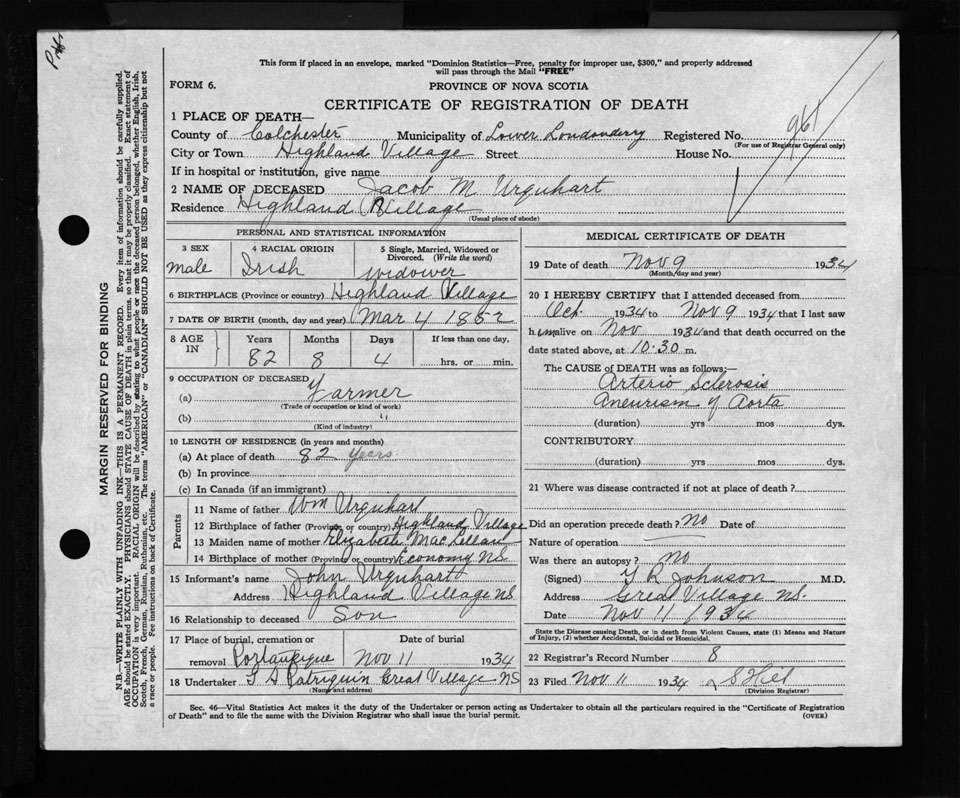 Prtf
This form if placed in an envelope, marked "Dominion Statistics—Free, penalty for improper use, $300," and properly addressed
will pass through the Mail "FREE"
FORM 6.
PROVINCE OF NOVA SCOTIA
CERTIFICATE OF REGISTRATION OF DEATH
1 PLACE OF DEATH—
County of Colchester Municipality of Lower Londonderry Registered No. 961
(For use of Registrar General only)
City or Town Highland Village Street House No.
If in hospital or institution, give name
2 NAME OF DECEASED Jacob M. Urquhart
Residence Highland Village
(Usual place of abode)
PERSONAL AND STATISTICAL INFORMATION
3 SEX
male
4 RACIAL ORIGIN
Irish
5 Single, Married, Widowed or
Divorced. (Write the word)
widower
6 BIRTHPLACE (Province or country) Highland Village
7 DATE OF BIRTH (month, day and year) Mar 4 1852
8 AGE IN
Years Months Days If less than one day,
82 8 4 hrs. or min.
9 OCCUPATION OF DECEASED
(a) Farmer
(Trade of occupation or kind of work)
(b) "
(Kind of industry)
10 LENGTH OF RESIDENCE (in years and months)
(a) At place of death 82 years
(b) In province
(c) In Canada (if an immigrant)
Parents
11 Name of father Wm Urquhart
12 Birthplace of father (Province or country) Highland Village
13 Maiden name of mother Elizabeth MacLellan
14 Birthplace of mother (Province or country) Economy N.S.
15 Informant's name John Urquhart
Address Highland Village NS
16 Relationship to deceased Son
17 Place of burial, cremation or
removal Portaupique
Date of burial
Nov 11 1934
18 Undertaker Patriquin Great Village NS
(Name and address)
MEDICAL CERTIFICATE OF DEATH
19 Date of death Nov 9 1934
(Month, day and year)
20 I HEREBY CERTIFY that I attended deceased from
Oct 1934 to Nov 9 1934 that I last saw
him alive on Nov 1934 and that death occurred on the
date stated above, at 10.30 m.
The CAUSE OF DEATH was as follows:
Arterio Sclerosis
Aneurism of Aorta
(duration) yrs mos dys.
CONTRIBUTORY
(duration) yrs. mos. dys.
21 Where was disease contracted if not at place of death?
Did an operation precede death? no Date of
Nature of operation
Was there an autopsy? no
(Signed) T R Johnson M.D.
Address Great Village NS.
Date Nov 11 1934
State the Disease causing Death, or in death from Violent Causes, state (1) Means and Nature
of Injury, (2) whether Accidental, Suicidal or Homicidal.
22 Registrar's Record Number 8
23 Filed Nov 11 1934
(Division Registrar)
Sec. 46—Vital Statistics Act makes it the duty of the Undertaker or person acting as Undertaker to obtain all the particulars required in the "Certificate of Registration
of Death" and to file the same with the Division Registrar who shall issue the burial permit. (OVER)
MARGIN RESERVED FOR BINDING
N.B.—WRITE PLAINLY WITH UNFADING INK—THIS IS A PERMANENT RECORD. Every item of information should be carefully supplied.
AGE should be stated EXACTLY. PHYSICIANS should STATE CAUSE OF DEATH in plain terms, so that it may be properly classified. Exact statement of
OCCUPATION is very important. RACIAL ORIGIN will be described by stating to what people or race the deceased person belonged, whether English, Irish,
Scotch, French, German, Russian, Ruthenian, etc. The terms "AMERICAN" or "CANADIAN" SHOULD NOT BE USED as they express citizenship but not
a race or people. See instructions on back of Certificate.